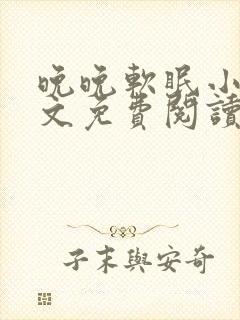 晚晚軟眠小
文免費閱讀
子末與安奇